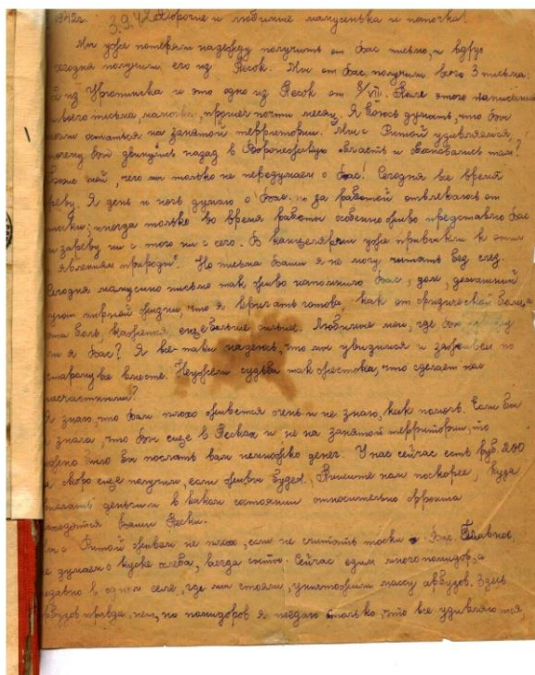 3.9.42 Дорогие и любимые мамусенька и папочка!
Мы уже потеряли надежду получить от Вас письмо, и вдруг
сегодня получили его из Песок. Мы от Вас получили всего 3 письма:
из Урюпинска и это одно из Песок от 8/VIII. После этого написания
письма, мамочка, прошел почти месяц. Я боюсь думать, что Вы
могли остаться на занятой территории. Мы с Ритой удивляемся,
почему Вы двинулись назад в Воронежскую область и остались там?
Боже мой, чего мы только не передумаем о Вас! Сегодня все время
реву. Я день и ночь думаю о Вас. за работой отвлекаюсь от
тоски; иногда только во время работы особенно живо представлю Вас
и зареву ни с того ни с сего. В канцелярии уже привыкли к этим
"явлениям природы". Но письма Ваши я не могу читать без слез.
Сегодня мамусино письмо так живо напомнило Вас, дом, домашний
мирной жизни, что я кричать готова, как от физической боли, а
эта боль, кажется, еще больше сильнее. Любимые мои, где
ли я Вас? Я все-таки надеюсь, что мы увидимся и заживем по
старому все вместе. Неужели судьба так жестока, что сделает нас
несчастными?
Я знаю, что Вам плохо живется очень и не знаю, как помочь. Если бы
я знала, что Вы еще в Песках и не на занятой территории, то
можно было бы послать вам немножко денег. У нас сейчас есть руб. 200
и скоро еще получим, если живы будем. Пишите нам поскорее, куда
послать деньги и в каком состоянии относительно фронта
находятся Ваши Пески.
Мы с Ритой живем не плохо, если не считать тоски о Вас. Главное,
не думаем о куске хлеба, всегда сыты. Сейчас едим много помидор, а
недавно в одном селе, где мы стояли, уничтожили массу арбузов. Здесь
арбузов правда, нет, но помидоров я поедаю столько, что все удивляются